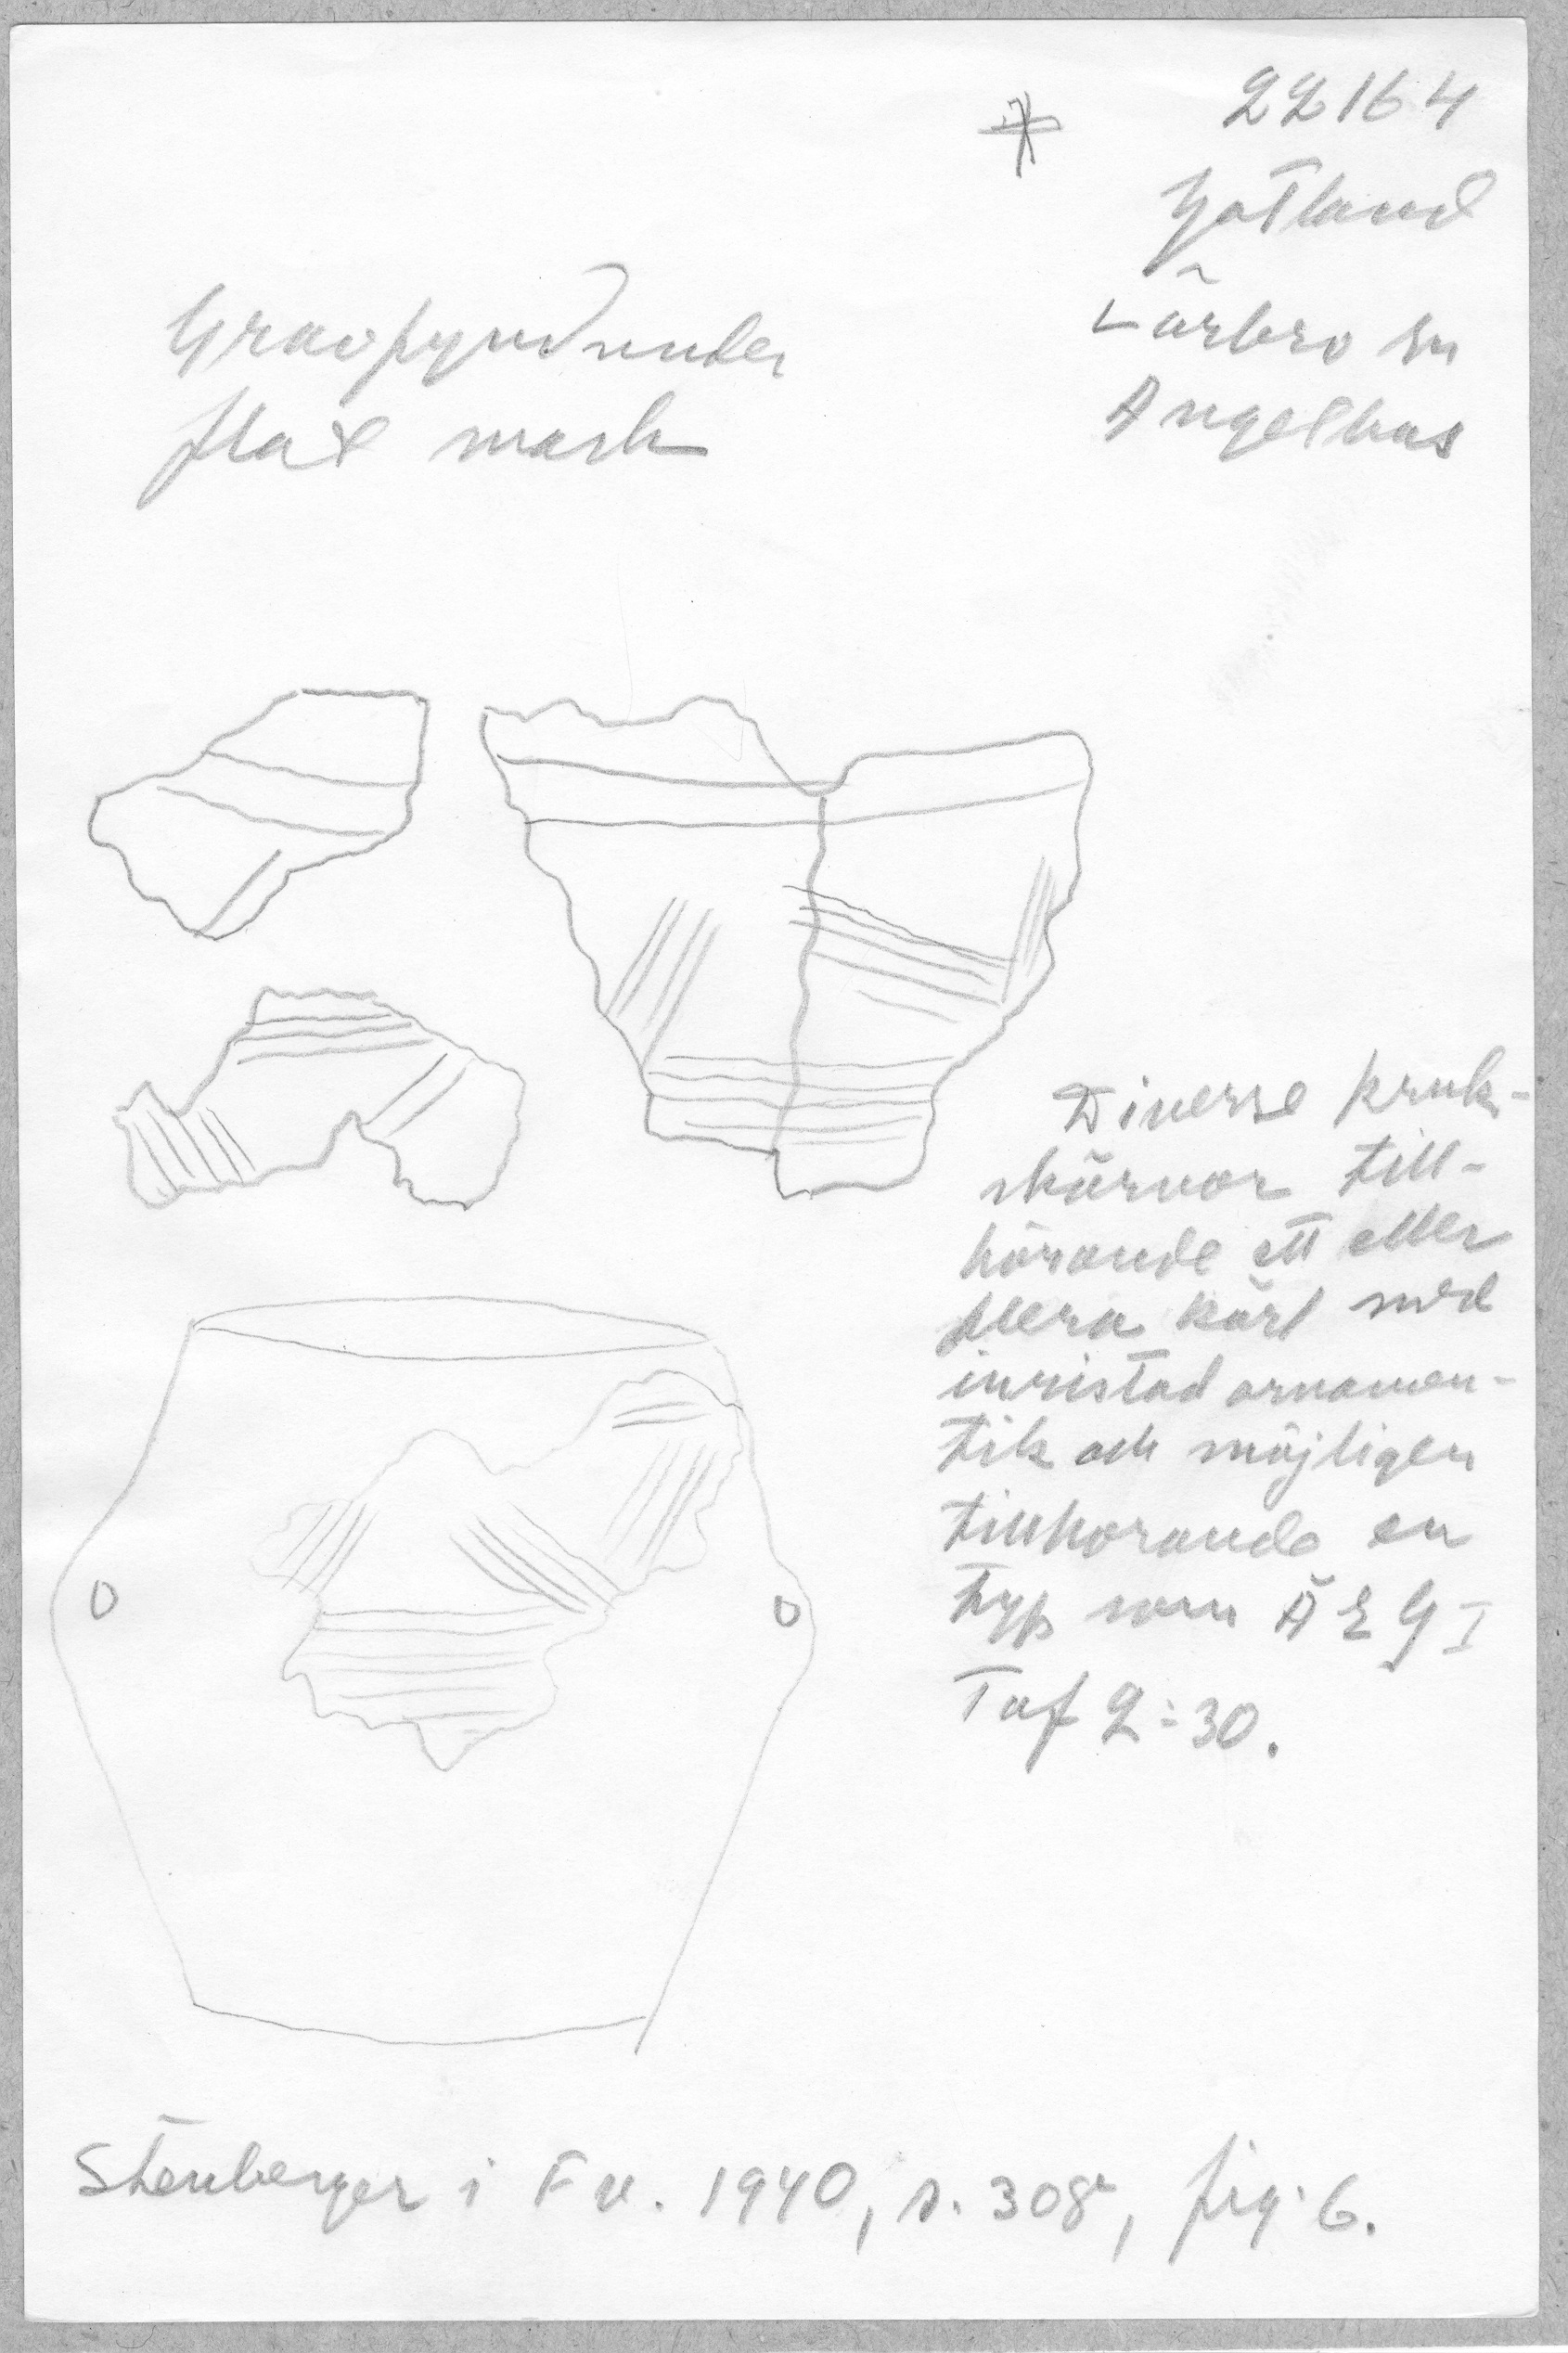 22164
Gotland
Lärbro sn
Angelbos
Gravfynd under
flat mark
Diverse kruk-
skärvor till-
hörande ett eller
flera kärl med
inristad ornamen-
tik och möjligen
tillhorande en
typ som ÄEG I
Taf 2:30.
Stenberger i Fv. 1940, s. 308, fig. 6.